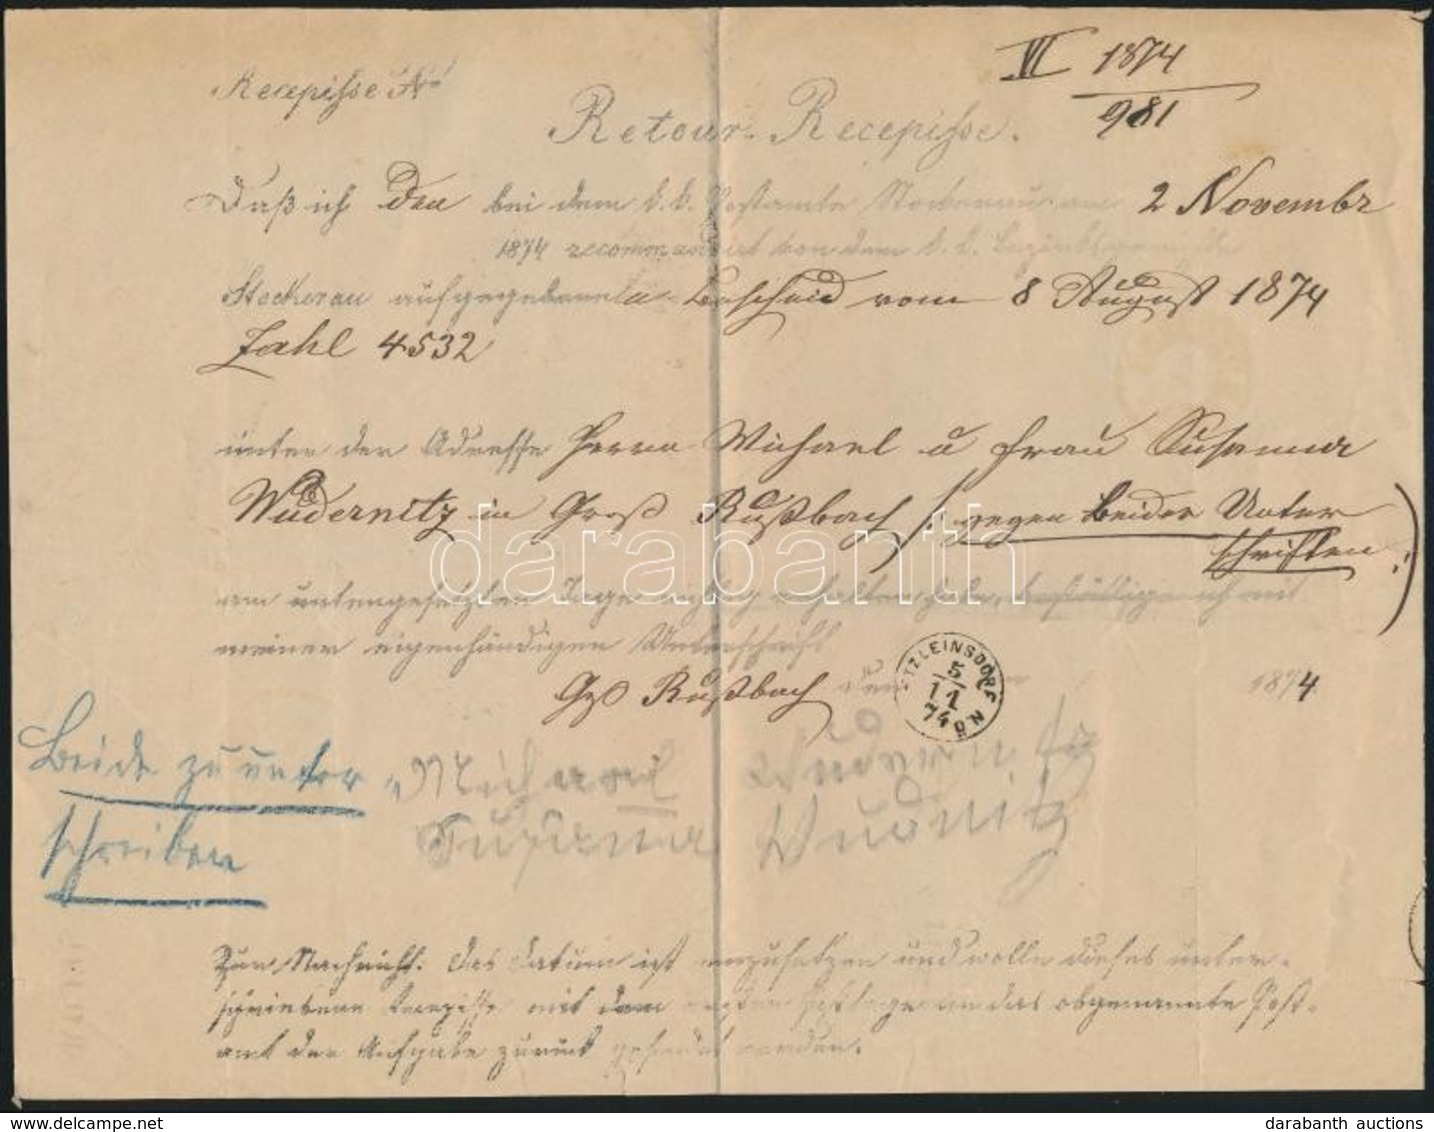 VI 1874
981
Recepisse No
Retour-Recepisse.
Daß ich den bei dem k. k. Postamte Stockerau am 2 Novembr
1874 recommandirt von dem k. k. Bezirksgerichte
Stockerau aufgegebenen Bescheid vom 8 August 1874
Zahl 4532
unter der Adresse Herrn Michael u Frau Susanna
Wudernitz in Groß Rußbach /: gegen Beider Unter
schriften :/
am untengesetzten Tage richtig erhalten habe, bestättige ich mit
meiner eigenhändigen Unterschrift
Gß Rußbach den 1874
TZLEINSDORF
5
11
74
N.Ö.
Beide zu unter
schreiben
Michael Wudernitz
Susanna Wudnitz
Zur Nachricht. Das Datum ist anzusetzen und wolle dieses unter-
schriebene Recepisse mit dem ersten Posttage an das obgenannte Post-
amt der Aufgabe zurück gesendet werden.
darabanth
delcampe.net
darabanth auctions